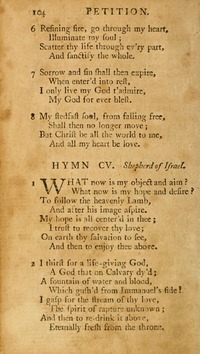 104 PETITION.
6 Refining fire, go through my heart,
Illuminate my soul;
Scatter thy life through ev'ry part,
And sanctify the whole.
7 Sorrow and sin shall then expire,
When enter'd into rest,
I only live my God t'admire,
My God for ever blest.
8 My stedfast soul, from falling free,
Shall then no longer move;
But Christ be all the world to me,
And all my heart be love.
HYMN CV. Shepherd of Israel.
1 WHAT now is my object and aim?
What now is my hope and desire?
To follow the heavenly Lamb,
And after his image aspire.
My hope is all center'd in thee;
I trust to recover thy love;
On earth thy salvation to see,
And then to enjoy thee above.
2 I thirst for a life-giving God,
A God that on Calvary dy'd;
A fountain of water and blood,
Which gush'd from Immanuel's side!
I gasp for the stream of thy love,
The spirit of rapture unknown;
And then to re-drink it above,
Eternally fresh from the throne.